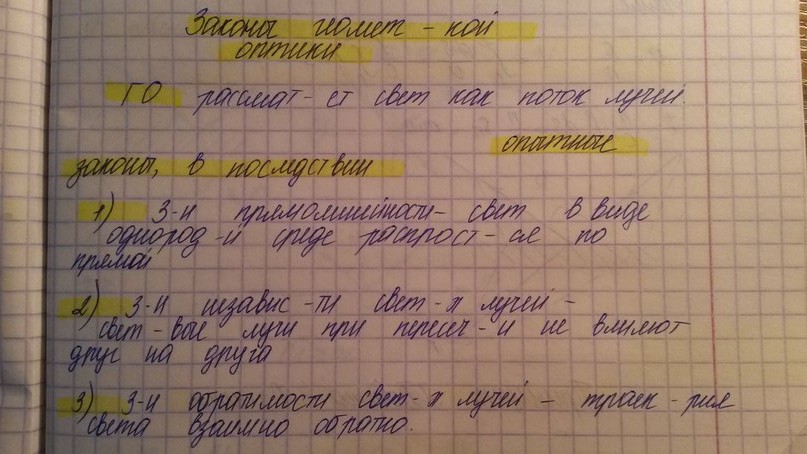 Законы геомет - кой
оптики
ГО рассмат - ет свет как поток лучей.
опытные
законы, в последствии
1) З-н прямолинейности - свет в виде
однород - й среде распрост - ся по
прямой
2) З-н независ - ти свет - х лучей -
свет - вые лучи при пересеч - и не влияют
друг на друга
3) З-н обратимости свет - х лучей - траек - рия
света взаимно обратно.